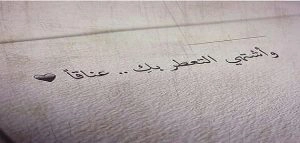 وأشتهي التعطر بك .. عناقاً